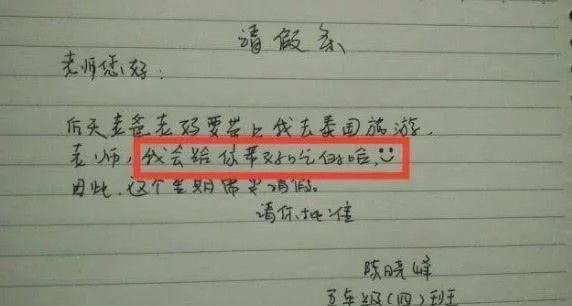 请假条
老师您好：
后天老爸老妈要带上我去泰国旅游，
老师，我会给你带好吃的哈，
因此，这个星期需要请假。
请你批准
陈晓峰
五年级(四)班